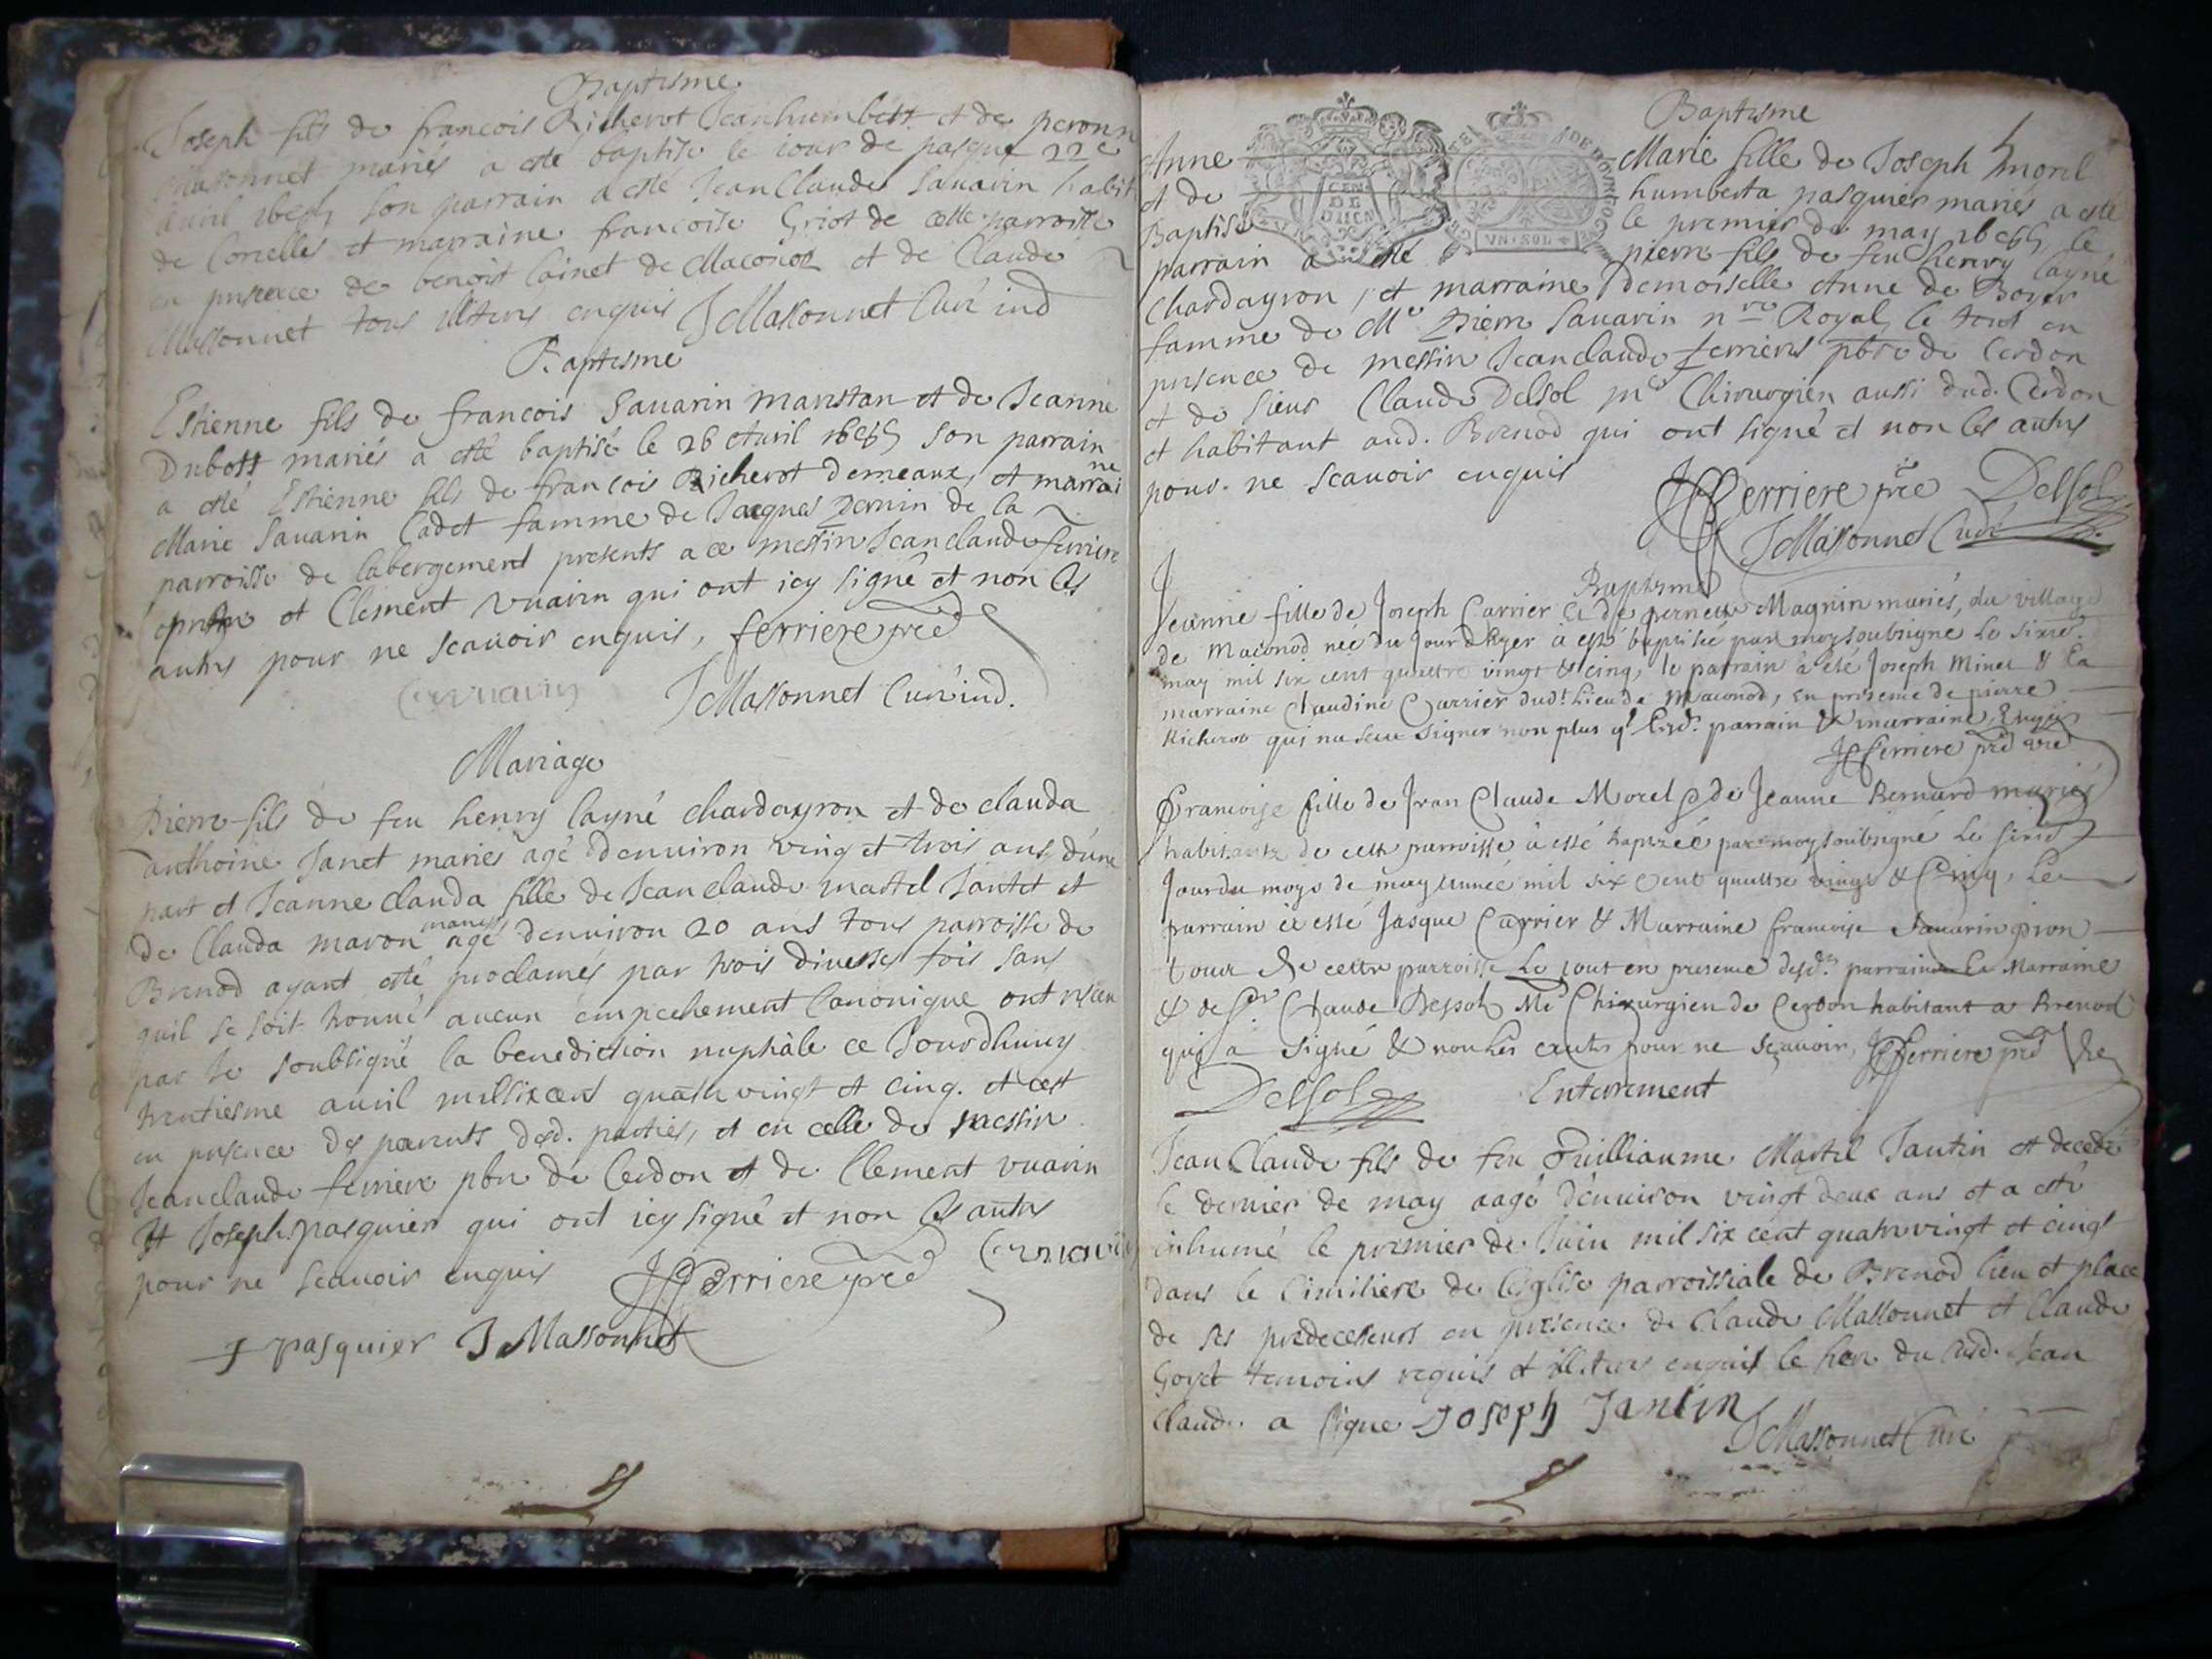 Baptisme
Joseph fils de francois Richerot Jeanhumbert et de peronn
Massonnet mariés a esté baptisé le iour de pasque 22e
auril son parrain a esté Jean Claude Sauarin habit
de Corcelles et marraine francoise Griot de cette parroisse
en presence de benoist Cainet de Maconod et de Claude
Massonnet tous illiteres enquis J Massonnet Curé ind
Baptisme
Estienne fils de francois Sauarin maristan et de Jeanne
Dubost mariés a esté baptisé le 26 Auril son parrain
a esté Estienne fils de francois Richerot demeaux, et marrai
ne
Marie Sauarin Cadet famme de Jacques Pernin de la
parroisse de labergement presents a ce messire Jeanclaude ferriere
et Clement vuarin qui ont icy signé et non les
autres pour ne scauoir enquis, ferriere pred
C vuarin J Massonnet Curé ind.
Mariage
Pierre fils de feu henry layné chardayron et de clauda
anthoine Janet mariés agé denuiron ving et trois ans d'une
part et Jeanne clauda fille de Jean claude martel Jantet et
de Clauda maron mariés agé denuiron 20 ans tous parroisse de
Brenod ayant esté proclamés par trois diuerses fois sans
quil se soit trouué aucun empechement Canonique ont receu
par le soubsigné la benediction nuptiale ce Jourdhuuy
trentiesme auril mil six cens quatre vingt et cinq. et cest
en presence des parents desd. parties, et en celle de messire
Jeanclaude ferriere pbre de Cerdon et de Clement vuarin
et Joseph pasquier qui ont icy signé et non les autres
pour ne scauoir enquis JC ferriere pred C vuarin
J pasquier J Massonnet
Baptisme
Anne Marie fille de Joseph morel
et de humberta pasquier mariés a esté
Baptisé le premier de may le
parrain a esté pierre fils de feu henry layné
chardayron, et marraine demoiselle Anne de Boyer
famme de Me Pierre Sauarin nre Royal, le tout en
presence de messire Jeanclaude ferriere pbre de Cerdon
et de sieur Claude Delsol me Chirurgien aussi dud. Cerdon
et habitant aud. Brenod qui ont signé et non les autres
pour ne scauoir enquis
JC ferriere pre Delsol
J Massonnet Curé
Baptisme
Jeanne fille de Joseph Carrier & de pernette Magnin mariés, du village
de Maconod née du Jour dhyer à esté baptisée par moy soubsigné le sixie.
may mil six cent quattre vingt & cinq, le parrain à été Joseph Minet & la
marraine Claudine Carrier dudt. lieu de Maconod, en presence de pierre
Richerot qui na sceu signer non plus q lesd. parrain & marraine, Enquis
JC ferriere pred vre
Francoise fille de Jean Claude Morel & de Jeanne Bernard mariés
habitants de cette parroisse à esté baptizée par moy soubsigné le sixie
Jour du moys de may année mil six cent quattre vingt & Cinq, le
parrain à esté Jasque Carrier & Marraine francoise Sauarin
tour de cette parroisse le tout en presence desd. parrain & Marraine
& de Sr. Claude Delsol Me Chirurgien de Cerdon habitant a Brenod
qui a signé & non les autres pour ne scauoir, JC ferriere pred vre
Delsol Enterrement
Jean Claude fils de feu Guilliaume Martel Jantin et decedé
le dernier de may aagé denuiron vingt deux ans et a esté
inhumé le premier de Juin mil six cent quatre vingt et cinq
dans le Cimitiere de leglise parroissiale de Brenod lieu et place
de ses predecesseurs en presence de Claude Massonnet et Claude
Goyet temoins requis et illiteres enquis le here du susd. Jean
Claude a signe Joseph Jantin
J Massonnet Curé
GEN
DE
VN SOL